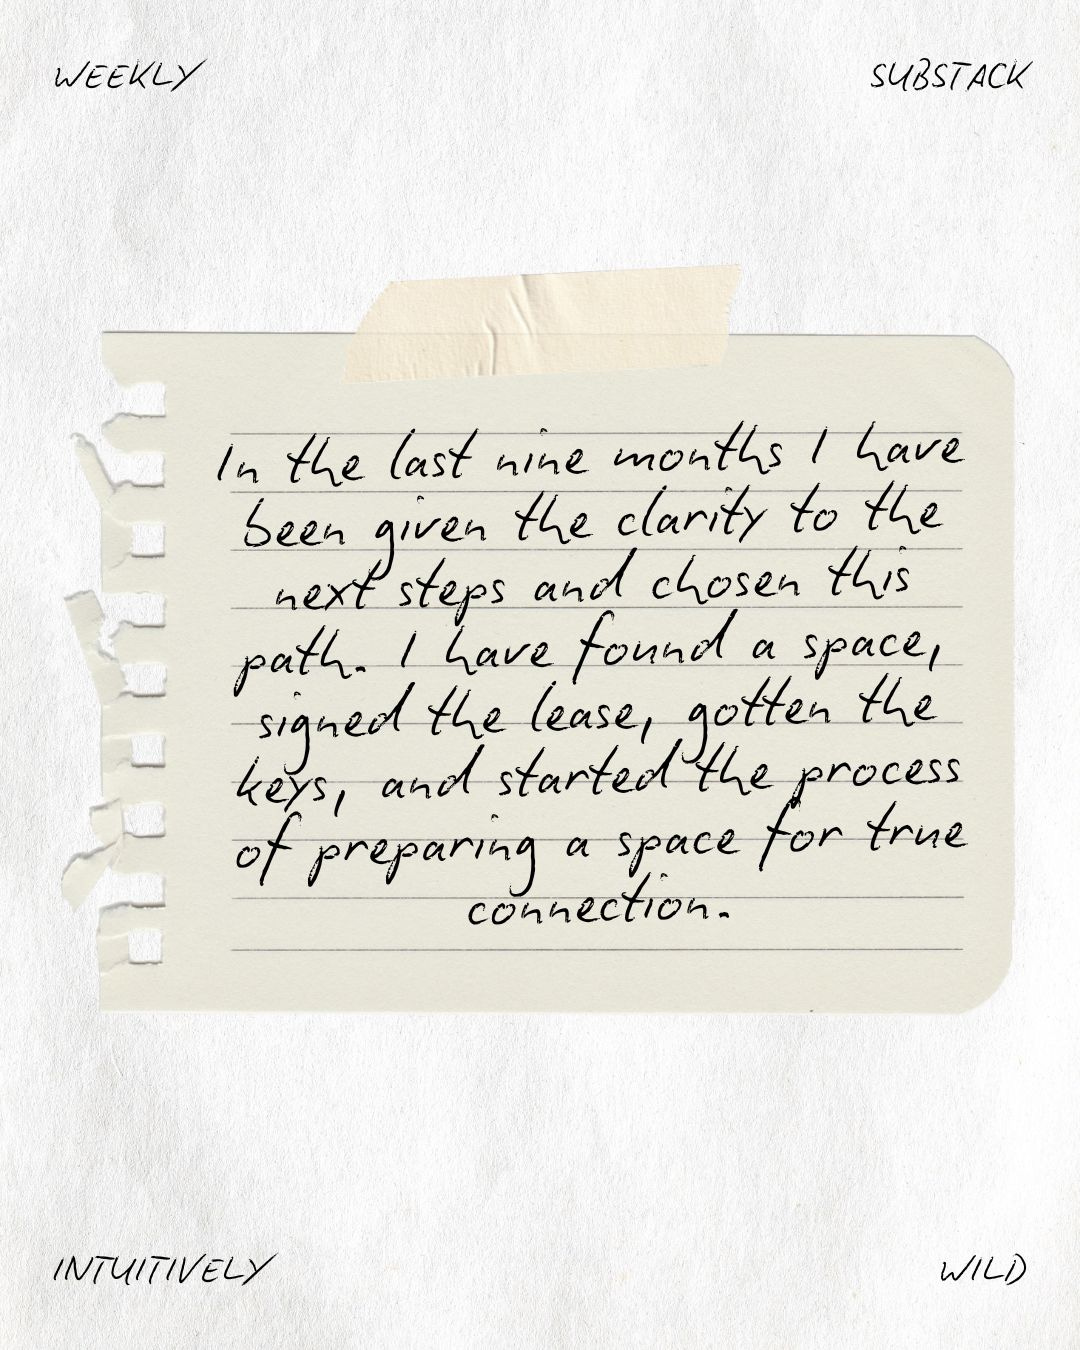 WEEKLY
SUBSTACK
In the last nine months I have
been given the clarity to the
next steps and chosen this
path. I have found a space,
signed the lease, gotten the
keys, and started the process
of preparing a space for true
connection.
INTUITIVELY
WILD